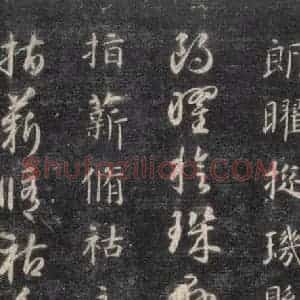 朗曜璇璣懸
朗曜璇璣懸
指薪脩祜
指薪脩祜
Shufaziliao.COM